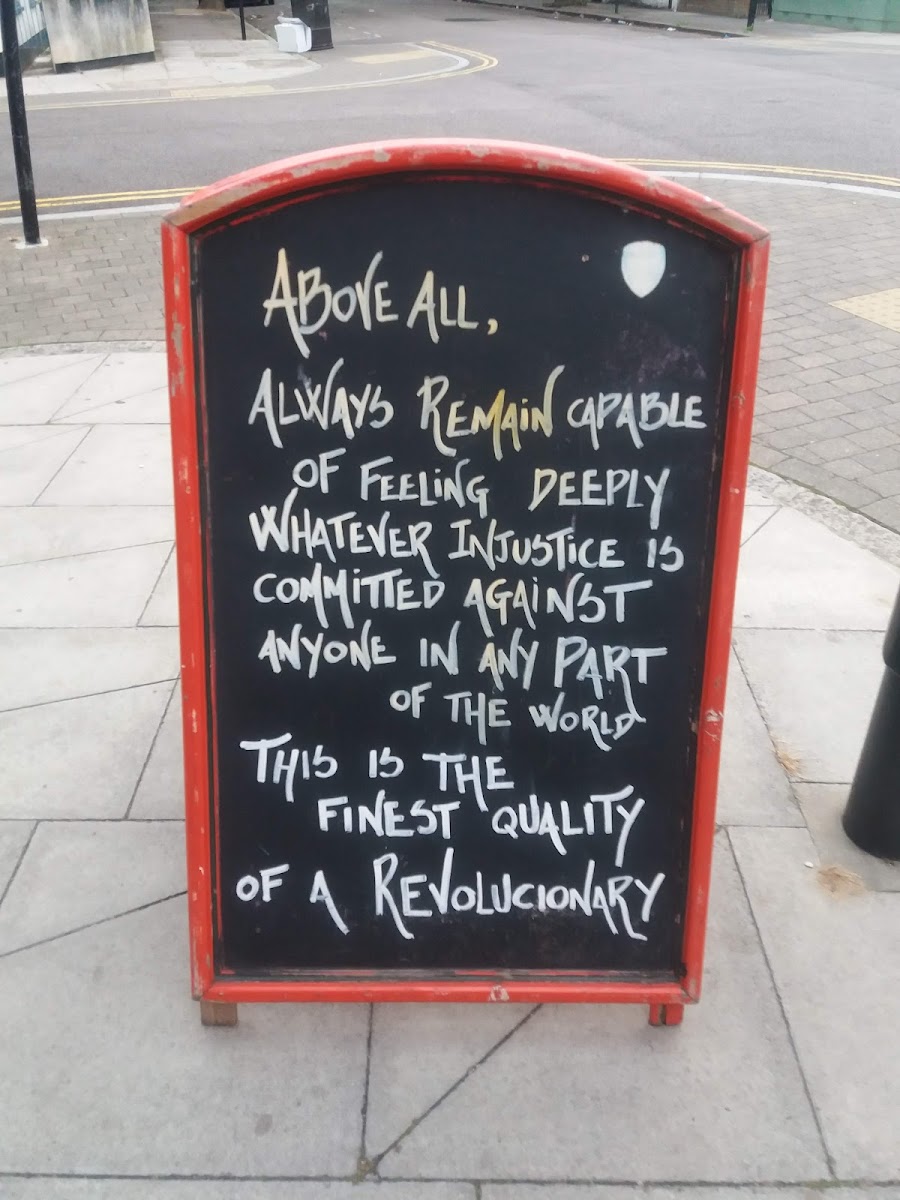 ABOVE ALL,
ALWAYS REMAIN CAPABLE
OF FEELING DEEPLY
WHATEVER INJUSTICE IS
COMMITTED AGAINST
ANYONE IN ANY PART
OF THE WORLD
THIS IS THE
FINEST QUALITY
OF A REVOLUCIONARY